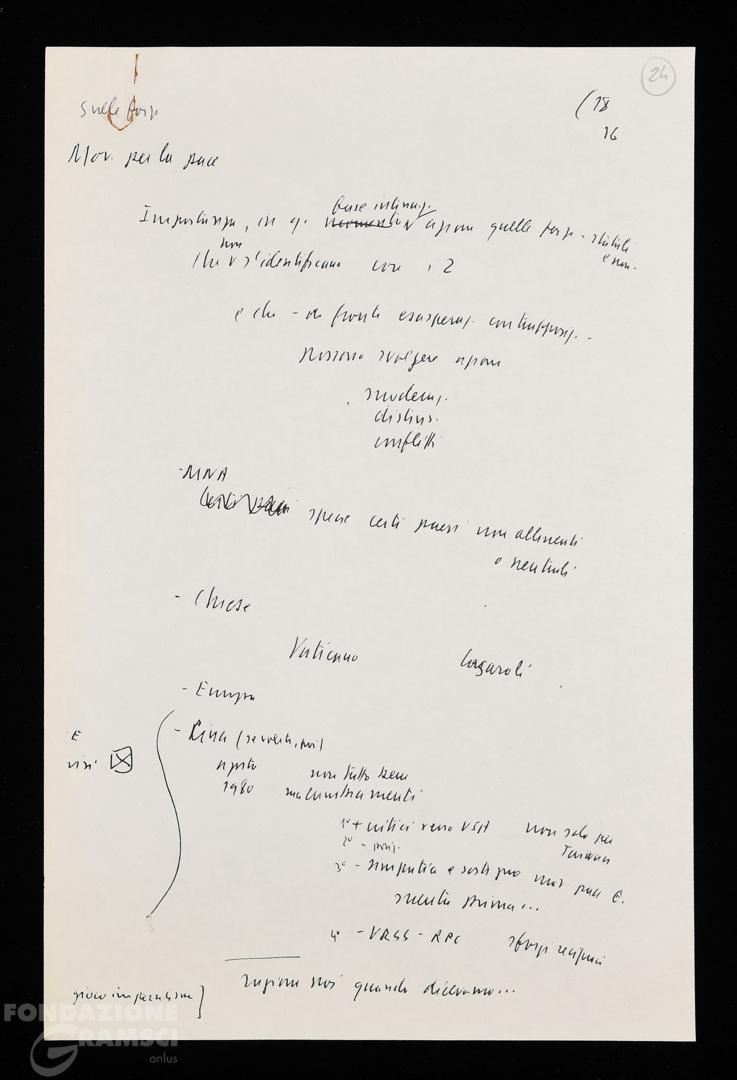 24
Sulle forze
(18
16
Mov. per la pace
Importanza, in q.
base
azione quelle forze - statali
e non -
che non s'identificano con i 2
e che - di fronte esasperaz. contrapposiz. -
possono svolgere azione
moderaz.
distens.
conflitti
- MNA
specie certi paesi non allineati
o neutrali
- Chiese
Vaticano Casaroli
- Europa
- Cina
E
agosto 1980
non tutto bene
ma cambiamenti
1° + critici verso USA non solo per
Taiwan
2° -
3° - simpatia e sostegno mov. pace E.
mentre prima...
4° - URSS - RPC sforzi reciproci
ragione noi quando dicevamo...
FONDAZIONE
GRAMSCI
onlus